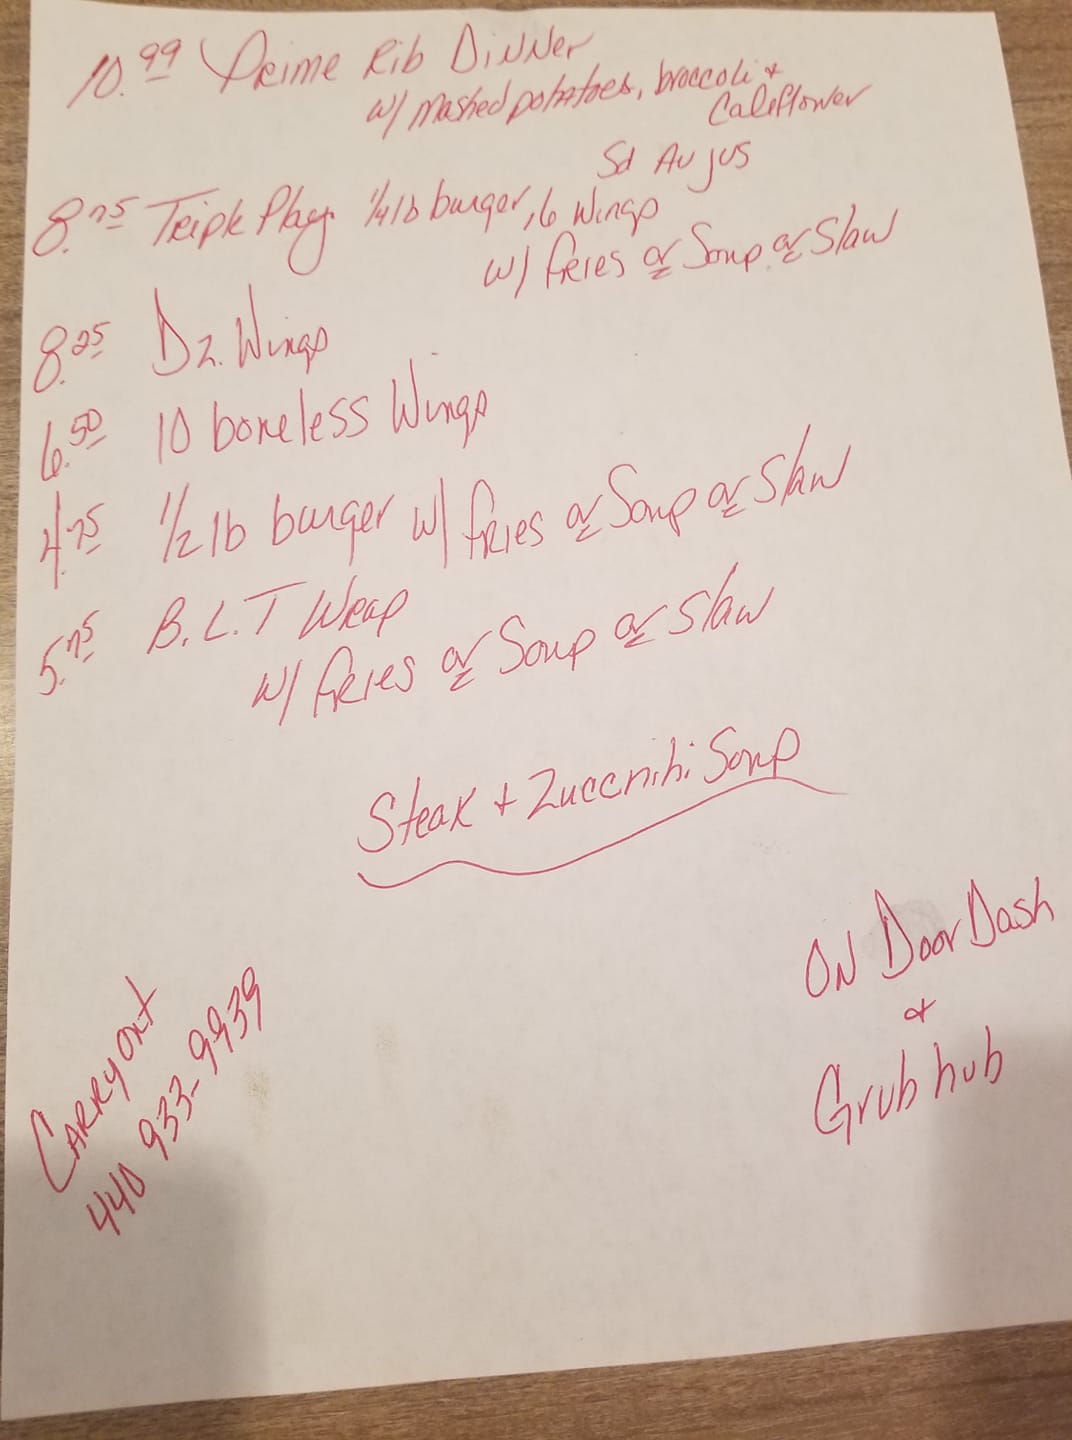 10.99 Prime Rib Dinner
w/ mashed potatoes, broccoli +
Califlower
Sd Au jus
8.75 Triple Play 1/4 lb burger, 6 Wings
w/ fries or Soup or Slaw
8.25 Dz. Wings
6.50 10 boneless Wings
4.75 1/2 lb burger w/ fries or Soup or Slaw
5.75 B.L.T Wrap
w/ fries or Soup or Slaw
Steak + Zuccnihi Soup
ON DoorDash
+
Grubhub
CARRYOUT
440 933-9939